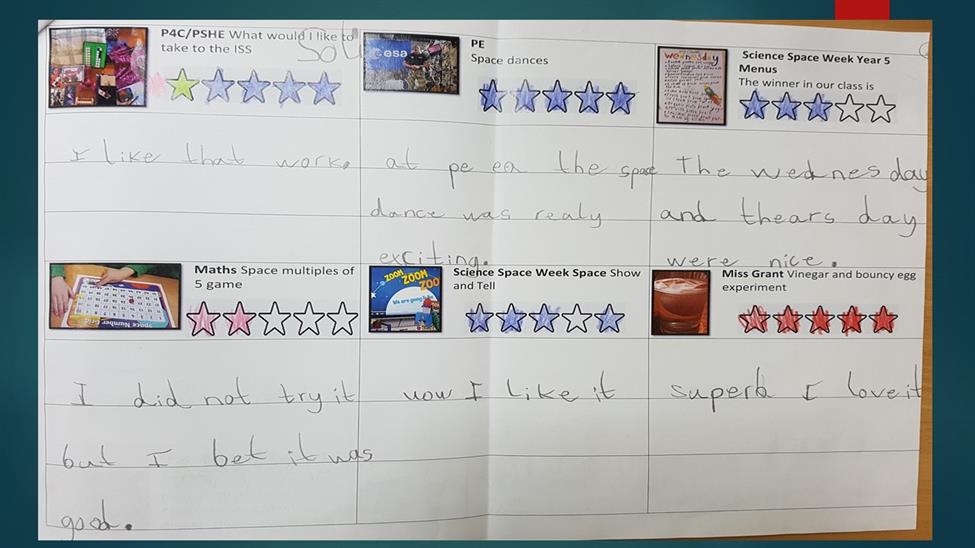 P4C/PSHE What would I like to
take to the ISS
I like that work.
PE
Space dances
esa
at pe the space
dance was realy
exciting.
Science Space Week Year 5
Menus
The winner in our class is
wednesday
The wednesday
and thears day
were nice.
Maths Space multiples of
5 game
Space Number Grid
I did not try it
but I bet it was
good.
Science Space Week Space Show
and Tell
ZOOM
ZOOM
ZOO
We are going
I like it
Miss Grant Vinegar and bouncy egg
experiment
superb I love it